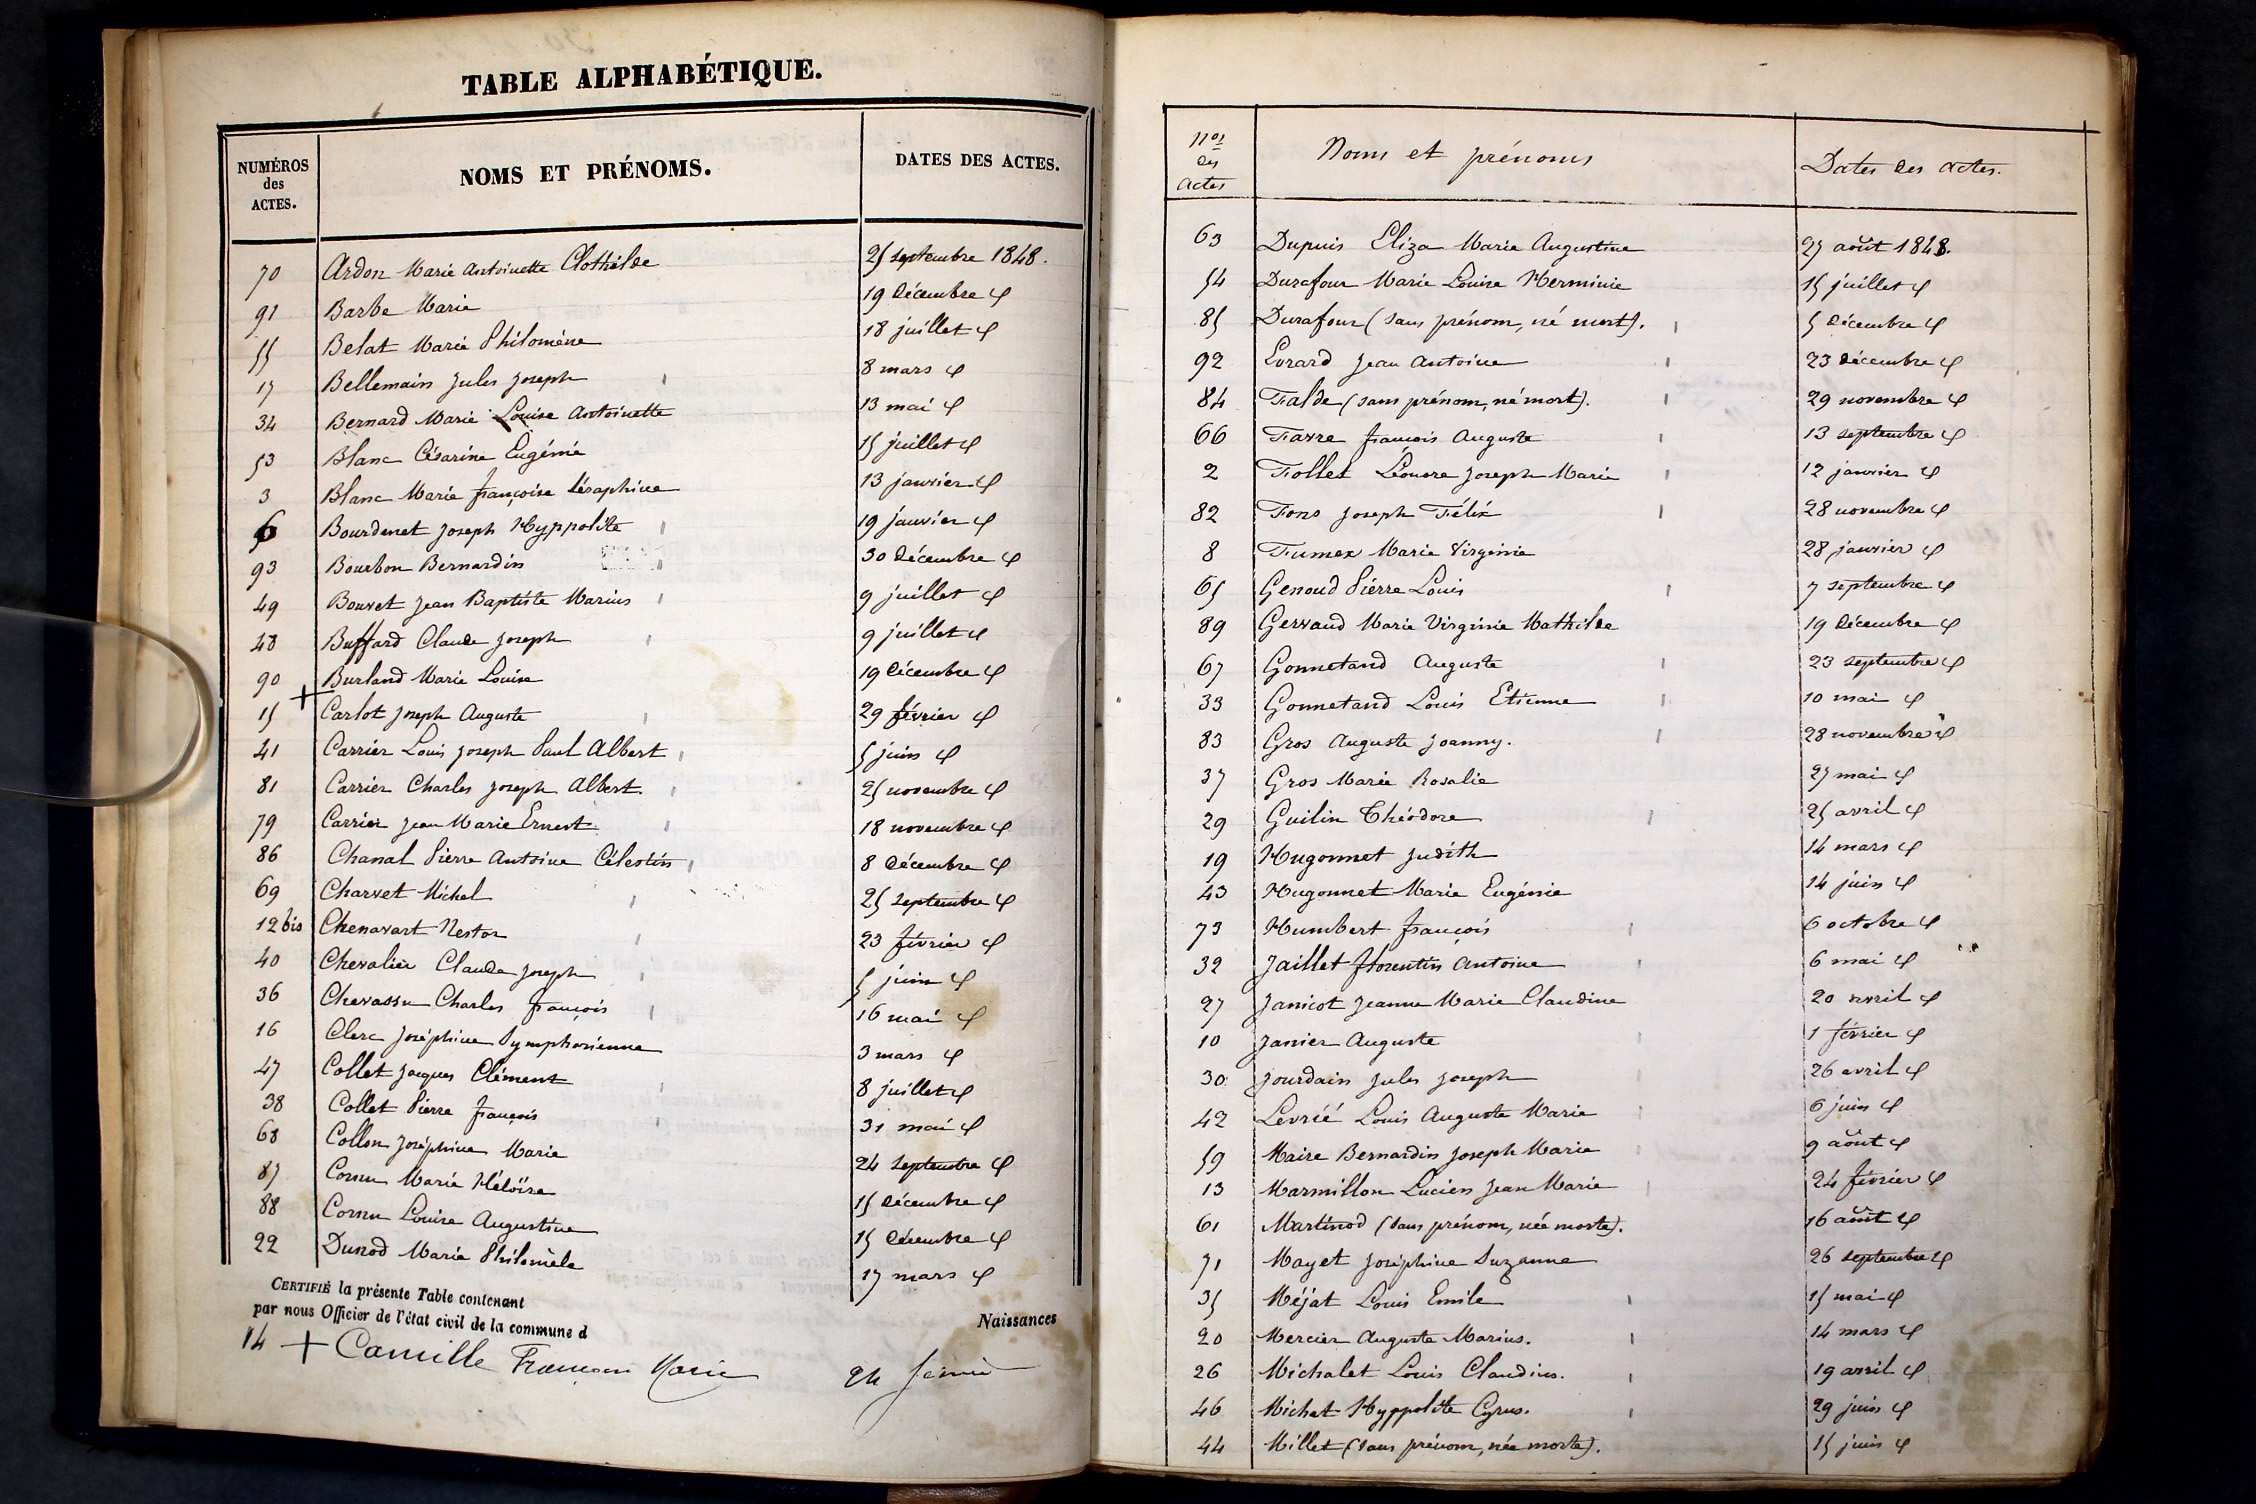 TABLE ALPHABÉTIQUE.
NUMÉROS des ACTES. NOMS ET PRÉNOMS. DATES DES ACTES.
70 Ardon Marie Antoinette Clothilde 25 septembre 1848.
91 Barbe Marie 19 décembre φ
55 Belat Marie Philomène 18 juillet φ
17 Bellemain Jules Joseph 8 mars φ
34 Bernard Marie Louise Antoinette 13 mai φ
53 Blanc Césarine Eugénie 15 juillet φ
3 Blanc Marie françoise Séraphine 13 janvier φ
6 Bourdenet Joseph Hyppolite 19 janvier φ
93 Bourbon Bernardin 30 décembre φ
49 Bouvet Jean Baptiste Marius 9 juillet φ
48 Buffard Claude Joseph 9 juillet φ
90 Burland Marie Louise 19 décembre φ
+
15 Carlot Joseph Auguste 29 février φ
41 Carrier Louis Joseph Paul Albert 5 juin φ
81 Carrier Charles Joseph Albert. 25 novembre φ
79 Carrier Jean Marie Ernest 18 novembre φ
86 Chanal Pierre Antoine Célestin 8 décembre φ
69 Charvet Michel 25 septembre φ
12 bis Chenavart Nestor 23 février φ
40 Chevalier Claude Joseph 5 juin φ
36 Chevassu Charles françois 16 mai φ
16 Clerc Joséphine Symphorienne 3 mars φ
47 Collet Jacques Clément 8 juillet φ
38 Collet Pierre françois 31 mai φ
68 Collon Joséphine Marie 24 septembre φ
87 Cornu Marie Héloïse 15 décembre φ
88 Cornu Louise Augustine 15 décembre φ
22 Dunod Marie Philomèle 17 mars φ
CERTIFIÉ la présente Table contenant Naissances
par nous Officier de l'état civil de la commune d
14 + Camille François Marie 24 février
Nos des actes Noms et prénoms Dates des actes.
63 Dupuis Eliza Marie Augustine 27 août 1848.
54 Durafour Marie Louise Herminie 15 juillet φ
85 Durafour (sans prénom, né mort). 5 décembre φ
92 Evrard Jean Antoine 23 décembre φ
84 Falde (sans prénom, né mort). 29 novembre φ
66 Favre françois Auguste 13 septembre φ
2 Follet Léonore Joseph Marie 12 janvier φ
82 Fons Joseph Félix 28 novembre φ
8 Fumex Marie Virginie 28 janvier φ
65 Genoud Pierre Louis 7 septembre φ
89 Gervaud Marie Virginie Mathilde 19 décembre φ
67 Gonnetand Auguste 23 septembre φ
33 Gonnetand Louis Etienne 10 mai φ
83 Gros Auguste Joanny. 28 novembre φ
37 Gros Marie Rosalie 27 mai φ
29 Guilin Théodore 25 avril φ
19 Hugonnet Judith 14 mars φ
43 Hugonnet Marie Eugénie 14 juin φ
73 Humbert françois 6 octobre φ
32 Jaillet florentin Antoine 6 mai φ
27 Janicot Jeanne Marie Claudine 20 avril φ
10 Janier Auguste 1 février φ
30 Jourdain Jules Joseph 26 avril φ
42 Levrié Louis Auguste Marie 6 juin φ
59 Maire Bernardin Joseph Marie 9 août φ
13 Marmillon Lucien Jean Marie 24 février φ
61 Martinod (sans prénom, née morte). 16 août φ
71 Mayet Joséphine Suzanne 26 septembre φ
35 Méjat Louis Emile 15 mai φ
20 Mercier Auguste Marius. 14 mars φ
26 Michalet Louis Claudius. 19 avril φ
46 Michat Hyppolite Cyrus. 29 juin φ
44 Millet (sans prénom, née morte). 15 juin φ